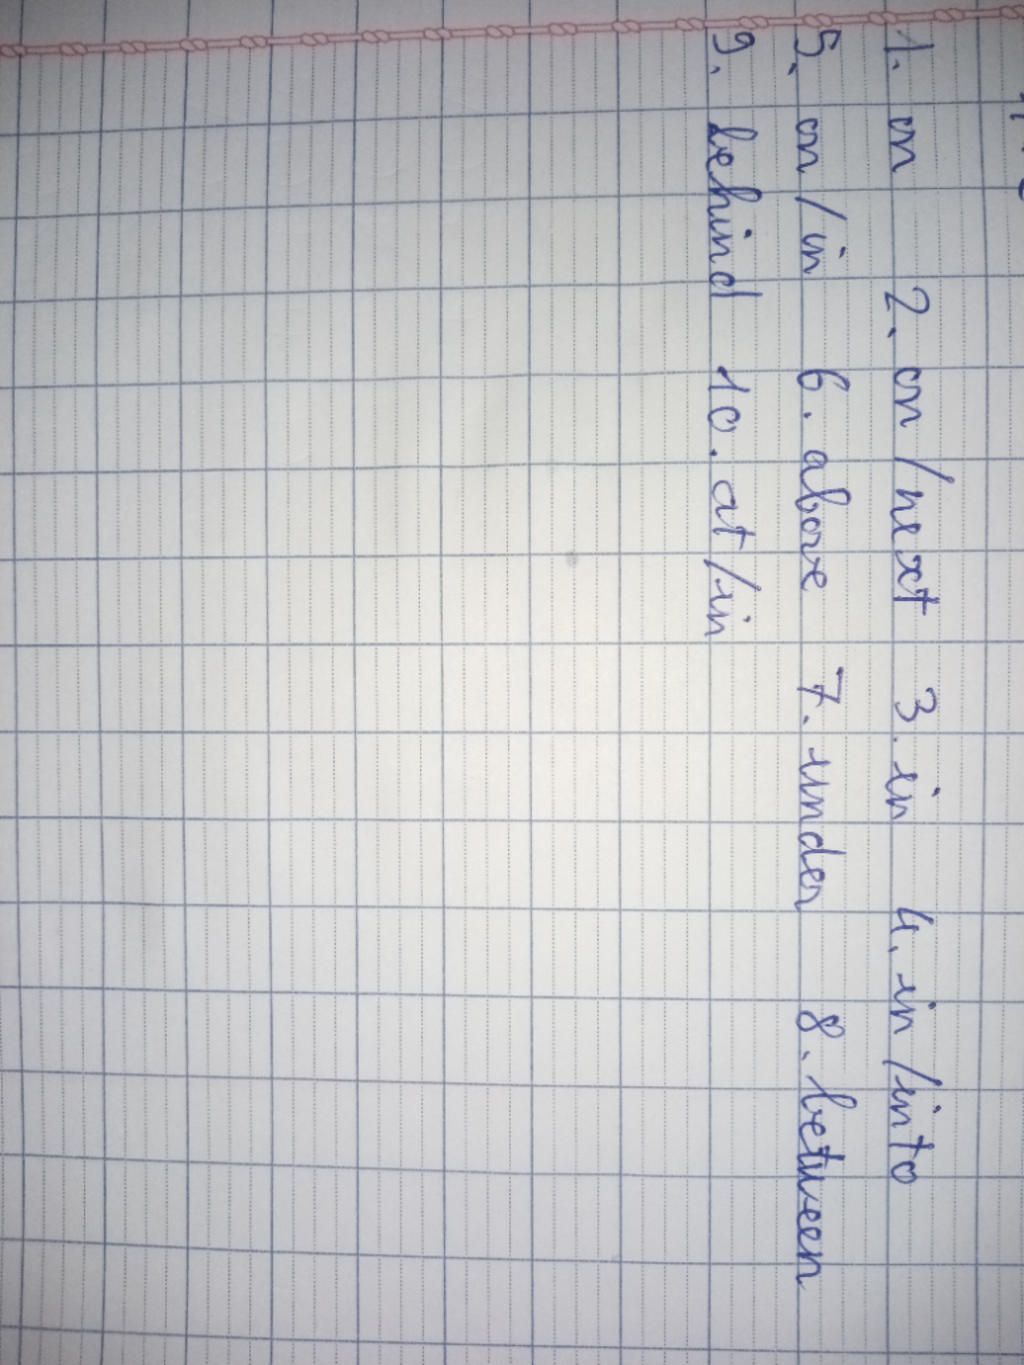 1. on 2. on/next 3. in 4. in/into
5. on/in 6. above 7. under 8. between
9. behind 10. at/in